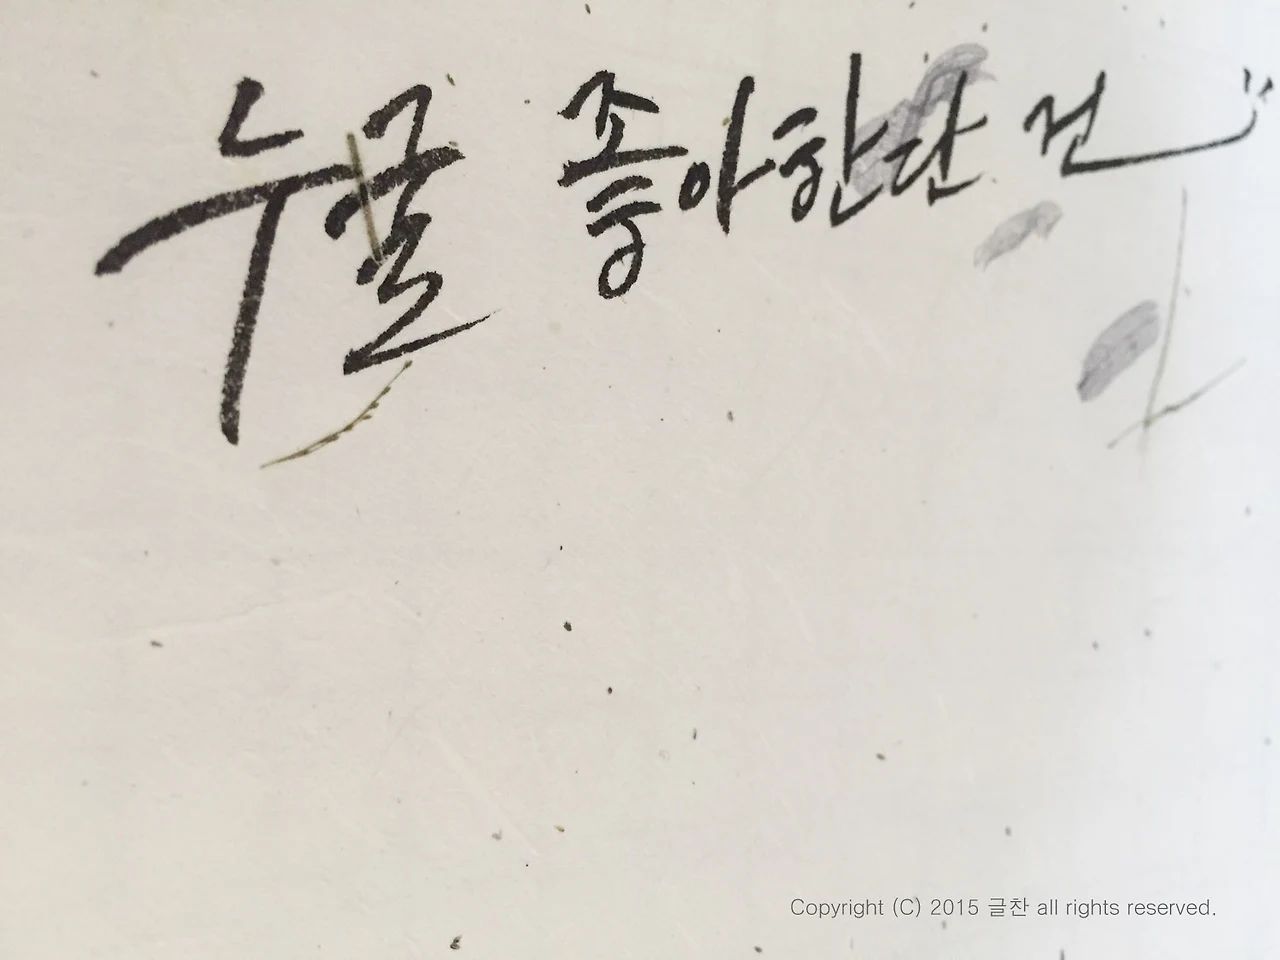 누굴 좋아한단 건
Copyright (C) 2015 글찬 all rights reserved.